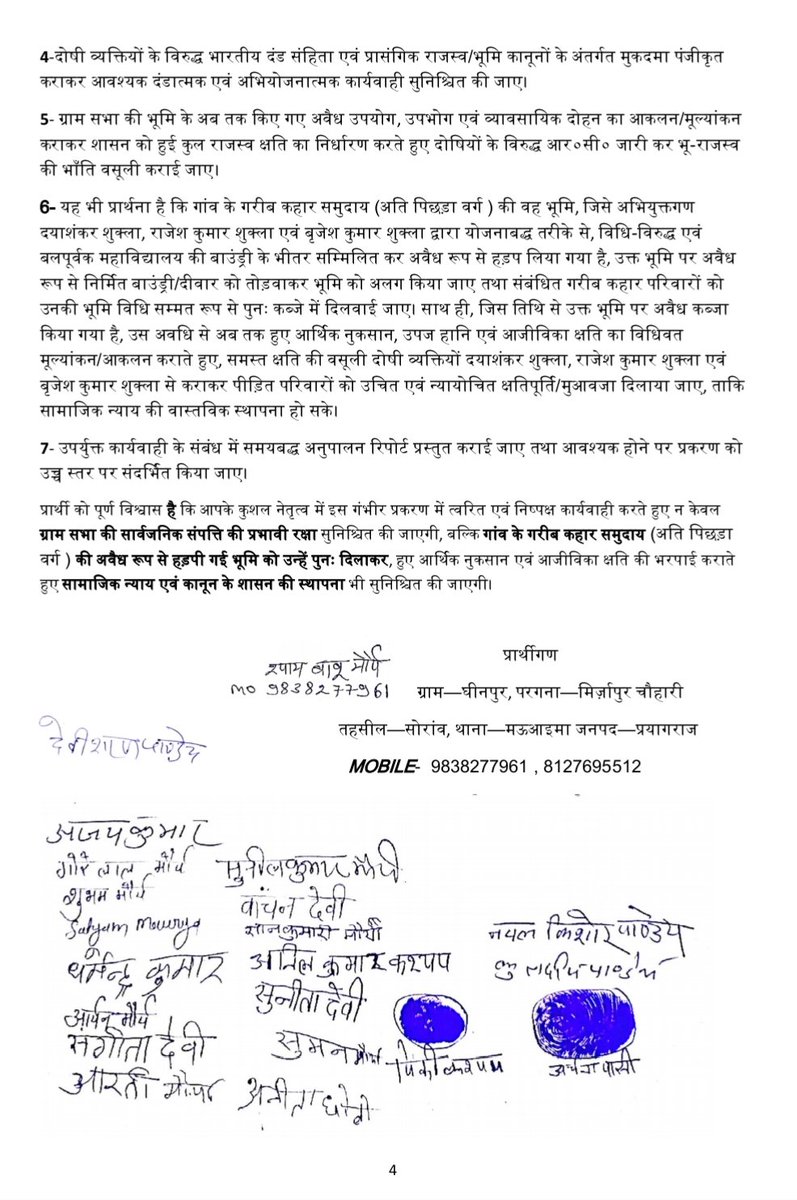 4-दोषी व्यक्तियों के विरुद्ध भारतीय दंड संहिता एवं प्रासंगिक राजस्व/भूमि कानूनों के अंतर्गत मुकदमा पंजीकृत
कराकर आवश्यक दंडात्मक एवं अभियोजनात्मक कार्यवाही सुनिश्चित की जाए।
5- ग्राम सभा की भूमि के अब तक किए गए अवैध उपयोग, उपभोग एवं व्यावसायिक दोहन का आकलन/मूल्यांकन
कराकर शासन को हुई कुल राजस्व क्षति का निर्धारण करते हुए दोषियों के विरुद्ध आर०सी० जारी कर भू-राजस्व
की भाँति वसूली कराई जाए।
6- यह भी प्रार्थना है कि गांव के गरीब कहार समुदाय (अति पिछड़ा वर्ग ) की वह भूमि, जिसे अभियुक्तगण
दयाशंकर शुक्ला, राजेश कुमार शुक्ला एवं बृजेश कुमार शुक्ला द्वारा योजनाबद्ध तरीके से, विधि-विरुद्ध एवं
बलपूर्वक महाविद्यालय की बाउंड्री के भीतर सम्मिलित कर अवैध रूप से हड़प लिया गया है, उक्त भूमि पर अवैध
रूप से निर्मित बाउंड्री/दीवार को तोड़वाकर भूमि को अलग किया जाए तथा संबंधित गरीब कहार परिवारों को
उनकी भूमि विधि सम्मत रूप से पुनः कब्जे में दिलवाई जाए। साथ ही, जिस तिथि से उक्त भूमि पर अवैध कब्जा
किया गया है, उस अवधि से अब तक हुए आर्थिक नुकसान, उपज हानि एवं आजीविका क्षति का विधिवत
मूल्यांकन/आकलन कराते हुए, समस्त क्षति की वसूली दोषी व्यक्तियों दयाशंकर शुक्ला, राजेश कुमार शुक्ला एवं
बृजेश कुमार शुक्ला से कराकर पीड़ित परिवारों को उचित एवं न्यायोचित क्षतिपूर्ति/मुआवजा दिलाया जाए, ताकि
सामाजिक न्याय की वास्तविक स्थापना हो सके।
7- उपर्युक्त कार्यवाही के संबंध में समयबद्ध अनुपालन रिपोर्ट प्रस्तुत कराई जाए तथा आवश्यक होने पर प्रकरण को
उच्च स्तर पर संदर्भित किया जाए।
प्रार्थी को पूर्ण विश्वास है कि आपके कुशल नेतृत्व में इस गंभीर प्रकरण में त्वरित एवं निष्पक्ष कार्यवाही करते हुए न केवल
ग्राम सभा की सार्वजनिक संपत्ति की प्रभावी रक्षा सुनिश्चित की जाएगी, बल्कि गांव के गरीब कहार समुदाय (अति पिछड़ा
वर्ग ) की अवैध रूप से हड़पी गई भूमि को उन्हें पुनः दिलाकर, हुए आर्थिक नुकसान एवं आजीविका क्षति की भरपाई कराते
हुए सामाजिक न्याय एवं कानून के शासन की स्थापना भी सुनिश्चित की जाएगी।
प्रार्थीगण
श्याम बाबू मौर्य
MO 9838277961 ग्राम—घीनपुर, परगना—मिर्ज़ापुर चौहारी
तहसील—सोरांव, थाना—मऊआइमा जनपद—प्रयागराज
पाण्डेय
MOBILE- 9838277961 , 8127695512
अजय कुमार
गोरे लाल मौर्य सुनील कुमार मौर्य
शुभम मौर्य
कंचन देवी
Satyam Maurya मौर्या नवल किशोर पाण्डेय
धर्मेन्द्र कुमार अनिल कुमार कश्यप पाण्डेय
सुनीता देवी
मौर्य
संगीता देवी सुमन मौर्य पिंकी कश्यप अर्चना पासी
आरती मौर्या अनीता
4